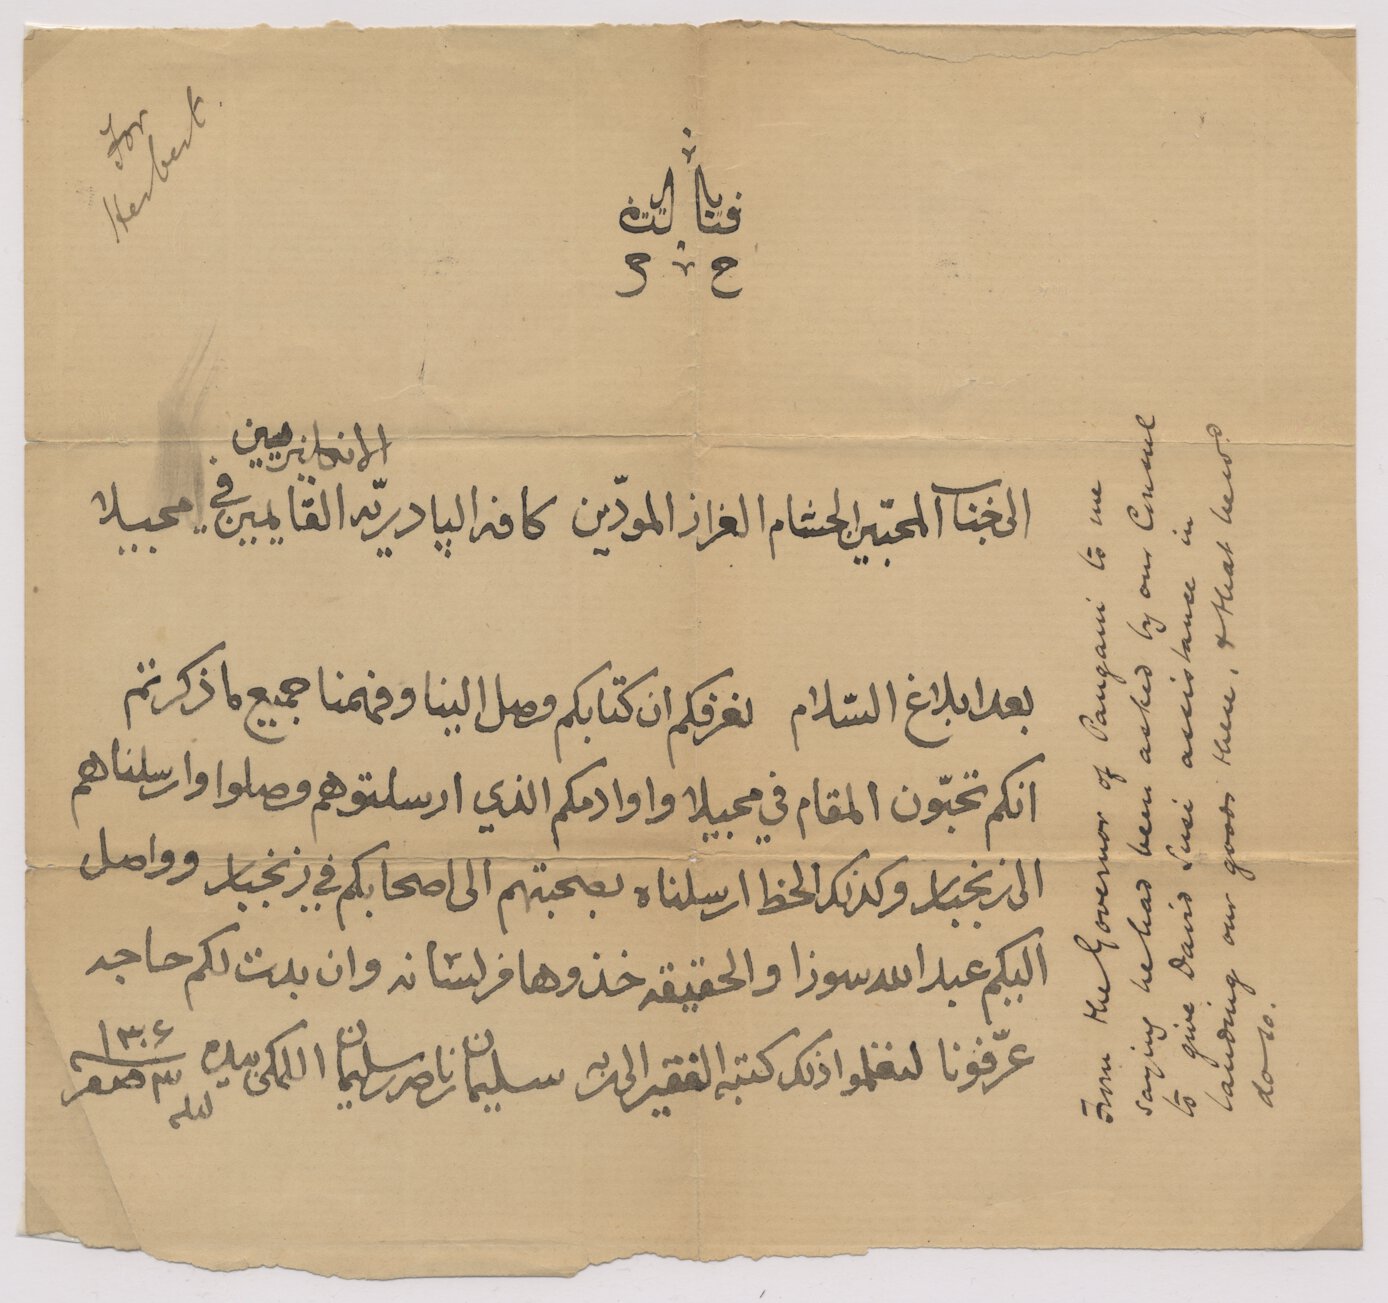 For
Herbert.
الانكليزيين
الى جناب المحبّين الحشام العزاز المودّين كافة الپادريّه القايمين في محبيلا
بعد ابلاغ السّلام نعرفكم ان كتابكم وصل الينا وفهمنا جميع ما ذكرتم
انكم تحبّون المقام في محبيلا واوادمكم الذي ارسلتوهم وصلوا وارسلناهم
الى زنجبار وكذلك الخط ارسلناه بصحبتهم الى اصحابكم في زنجبار وواصل
اليكم عبد الله سوزا والحقيقه خذوها فرلسانه وان بدت لكم حاجه
عرّفونا لنفعلوا ذلك كتبه الفقير الى ربه سليمان ناصر سليمان اللمكي بيده
٣ صفر ١٣٠٦
From the Governor of Pangani to me
saying he had been asked by our Consul
to give David Susi assistance in
landing our goods there, & that he wd.
do so.